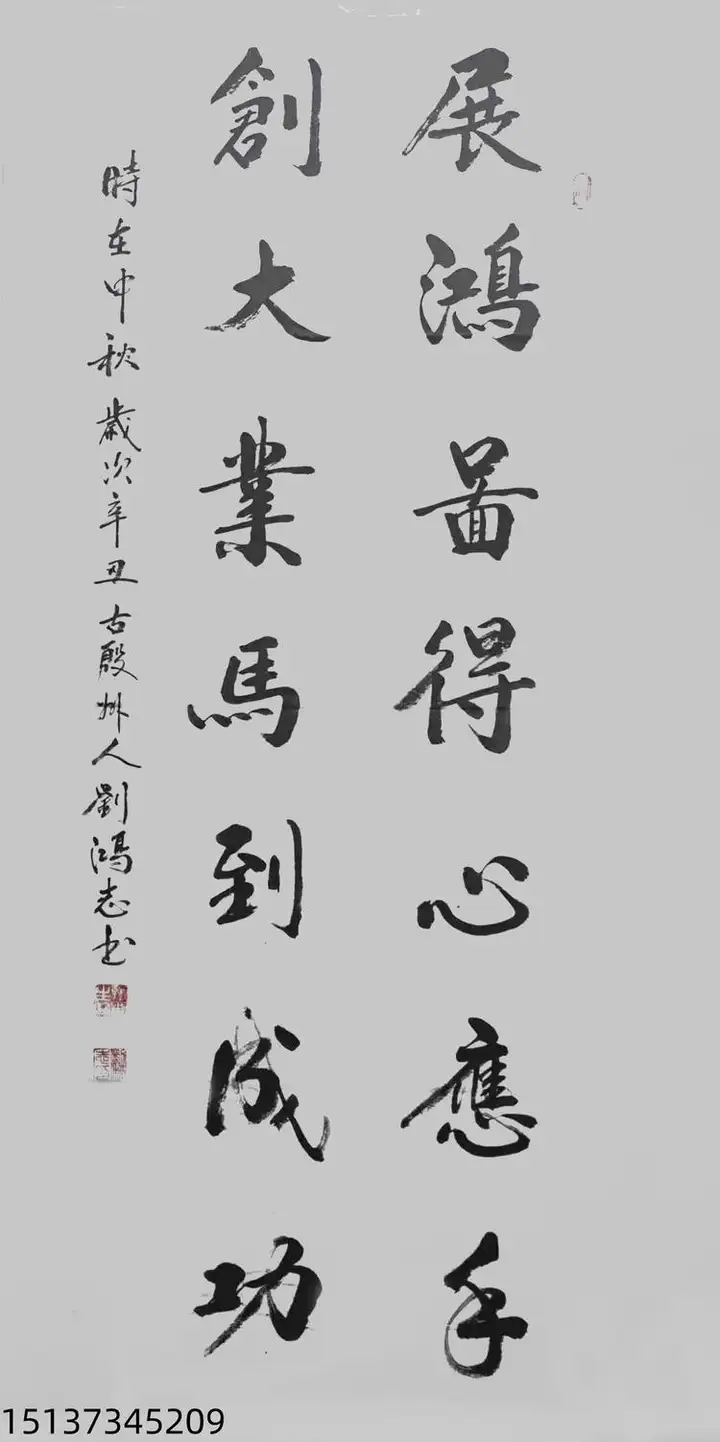 展鴻啚得心應手
創大業馬到成功
時在中秋歲次辛丑古殷州人劉鴻志书
15137345209